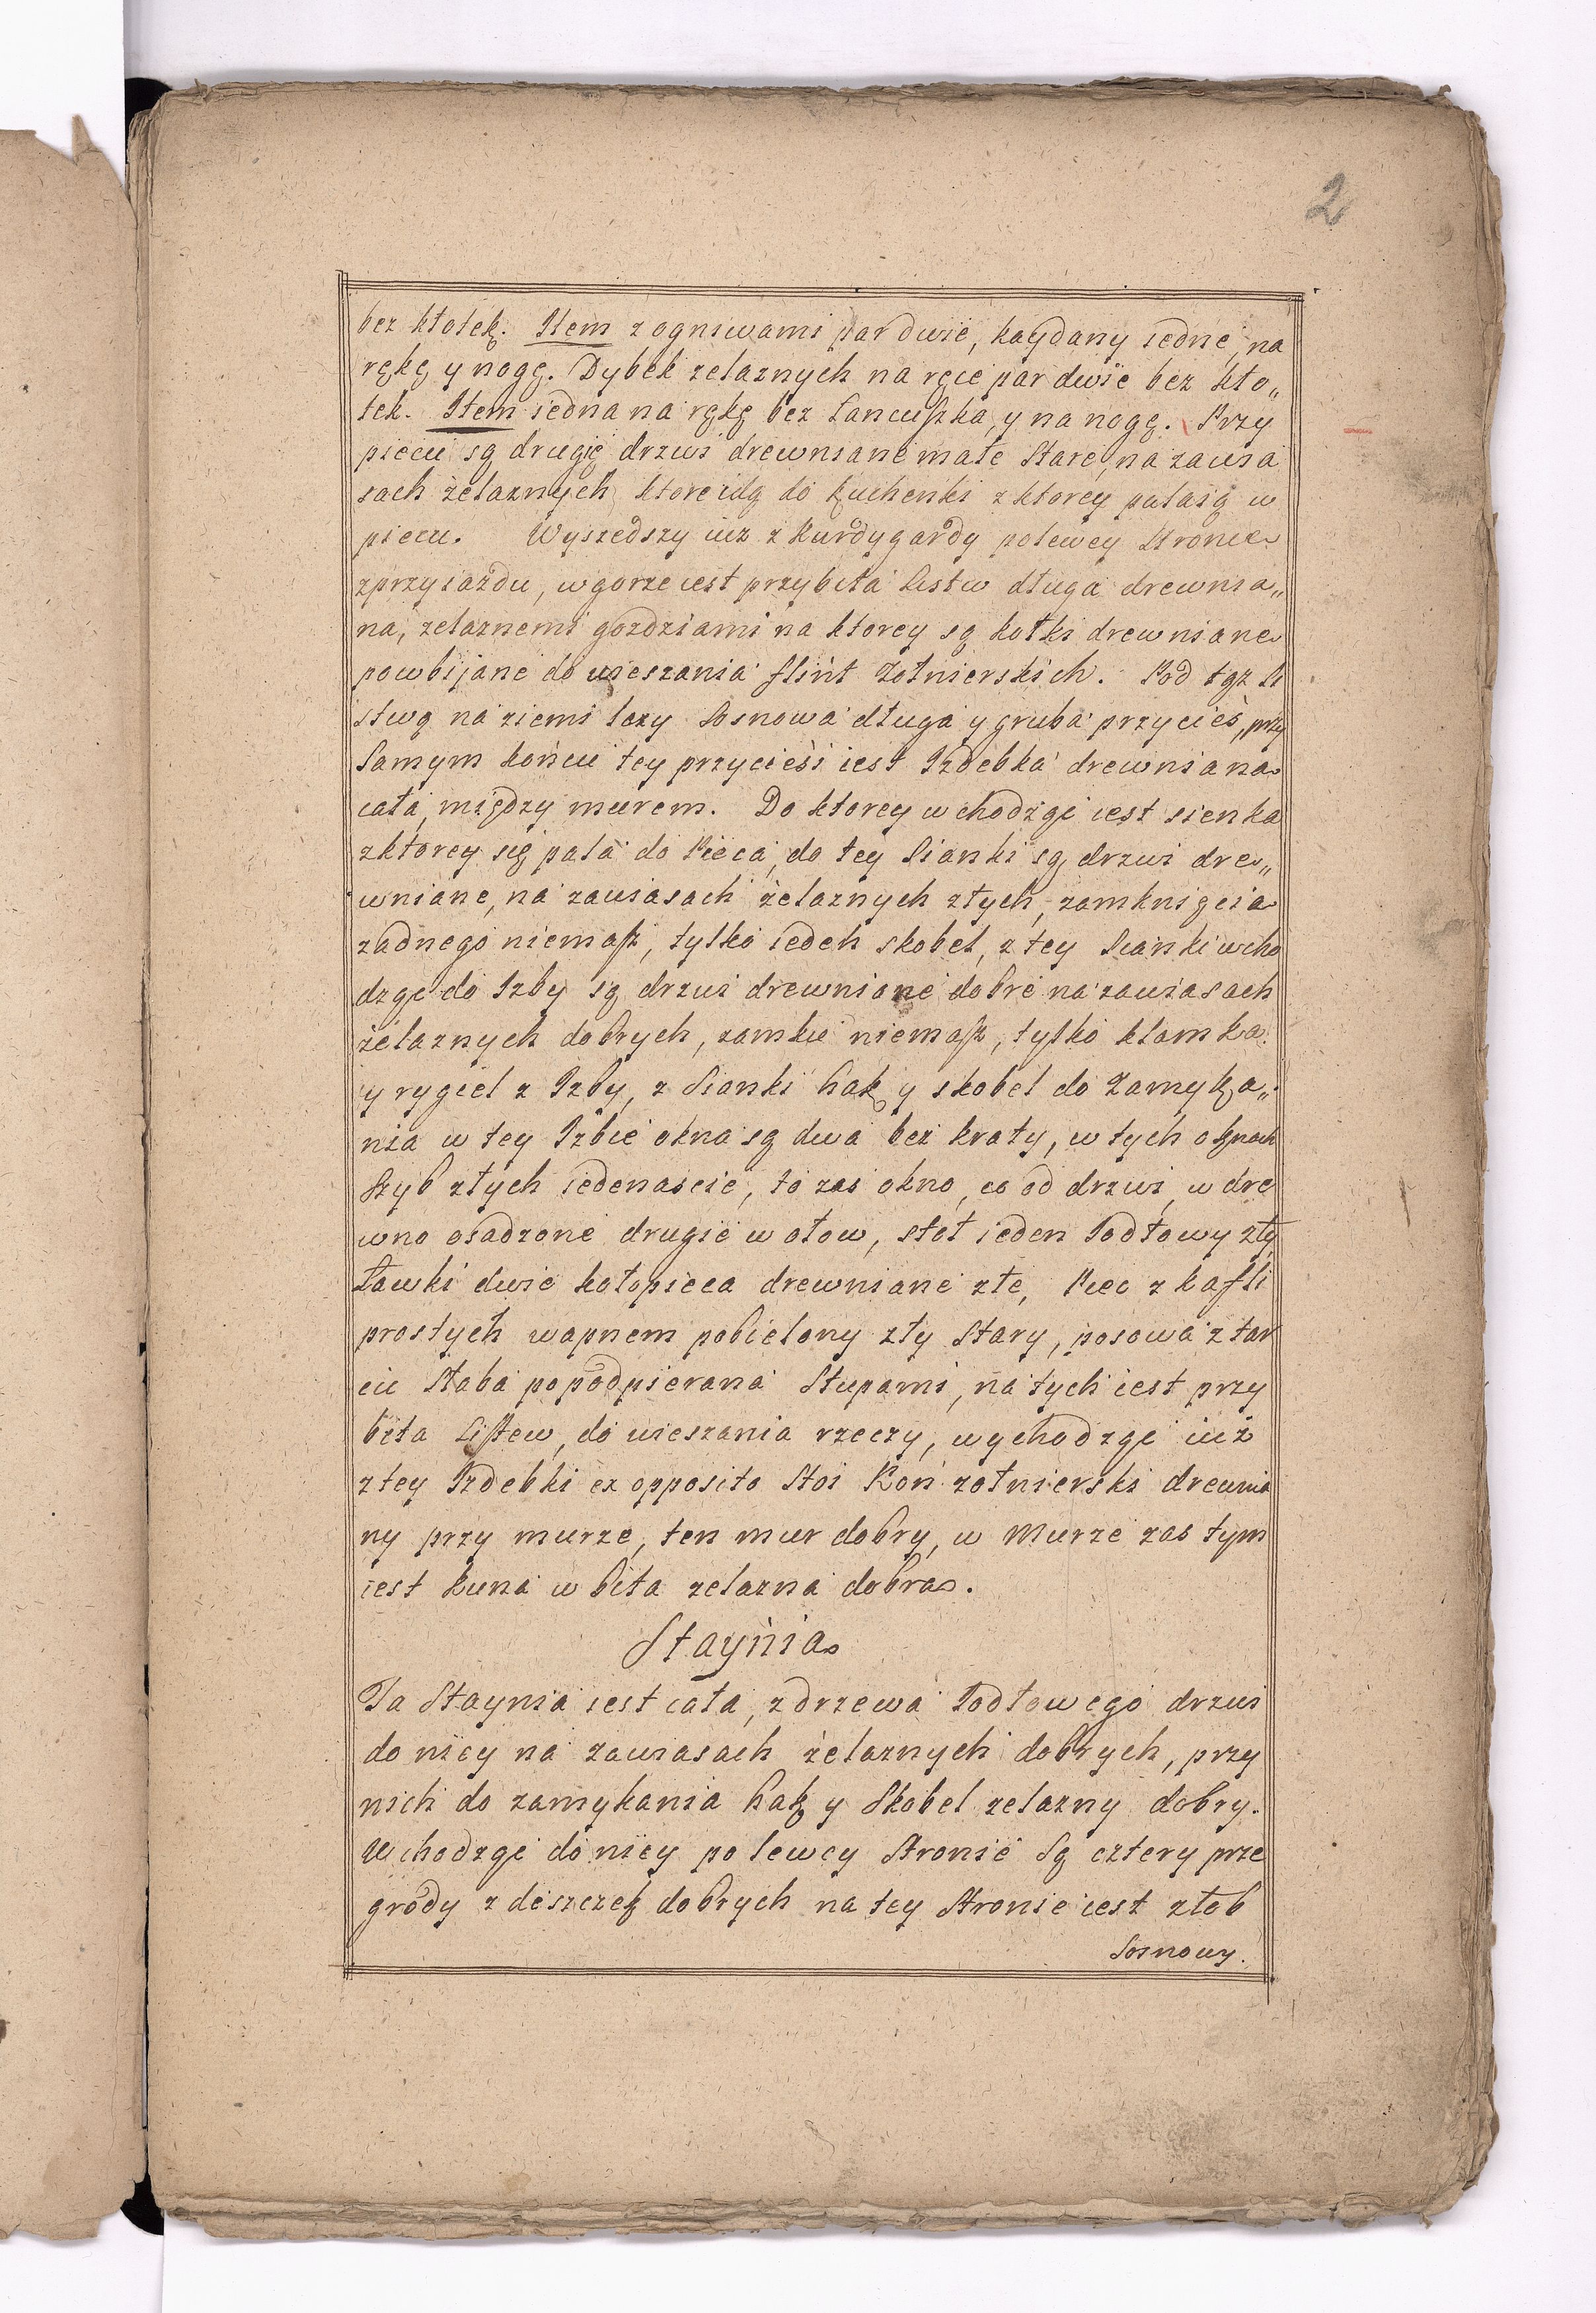 2
bez kłotek. Item z ogniwami par dwie, kaydany iedne, na
rękę y nogę. Dybek zelaznych na ręce par dwie bez kło„
tek. Item iedna na rękę bez Łancuszka, y na nogę. Przy
piecu są drugię drzwi drewniane małe Stare, na zawia
sach żelaznych, ktore idą do kuchenki z ktorey palaią w
piecu. Wyszedszy iuz z Kurdygardy po lewey Stronie
z przyiazdu, w gorze iest przybita Listw długa drewnia„
na, zelaznemi gozdziami na ktorey są kołki drewniane
powbijane do wieszania flint Zołnierskich. Pod tąz Li
stwą na ziemi lezy Sosnowa długa y gruba przycieś, przy
Samym końcu tey przycieśi iest Izdebka drewniana
cała, między murem. Do ktorey wchodząc iest sienka
z ktorey się pala do Pieca, do tey Sianki są drzwi dre„
wniane, na zawiasach żelaznych złych, zamknięcia
zadnego niemasz, tylko ieden skobel, z tey Sianki wcho
dząc do Izby są drzwi drewniane dobre na zawiasach
żelaznych dobrych, zamku niemasz, tylko klamka
y rygiel z Izby, z Sianki hak y skobel do Zamyka„
nia w tey Izbie okna są dwa bez kraty, w tych oknach
Szyb złych iedenascie, to zas okno, co od drzwi, w dre
wno osadzone drugie w ołow, stoł ieden Jodłowy zły,
Ławki dwie koło pieca drewniane złe, Piec z kafli
prostych wapnem pobielony zły Stary, posowa z tar
cic Słaba popodpierana Słupami, na tych iest przy
bita Listew, do wieszania rzeczy, wychodząc iuż
z tey Izdebki ex opposito Stoi Koń zołnierski drewnia
ny przy murze, ten mur dobry, w Murze zas tym
iest kuna w bita zelazna dobra.
Staynia
Ta Staynia iest cała, z drzewa Jodłowego drzwi
do niey na zawiasach żelaznych dobrych, przy
nich do zamykania hak y Skobel zelazny dobry.
Wchodząc do niey po lewey Stronie Są cztery prze
grody z deszczek dobrych na tey Stronie iest złob
Sosnowy.